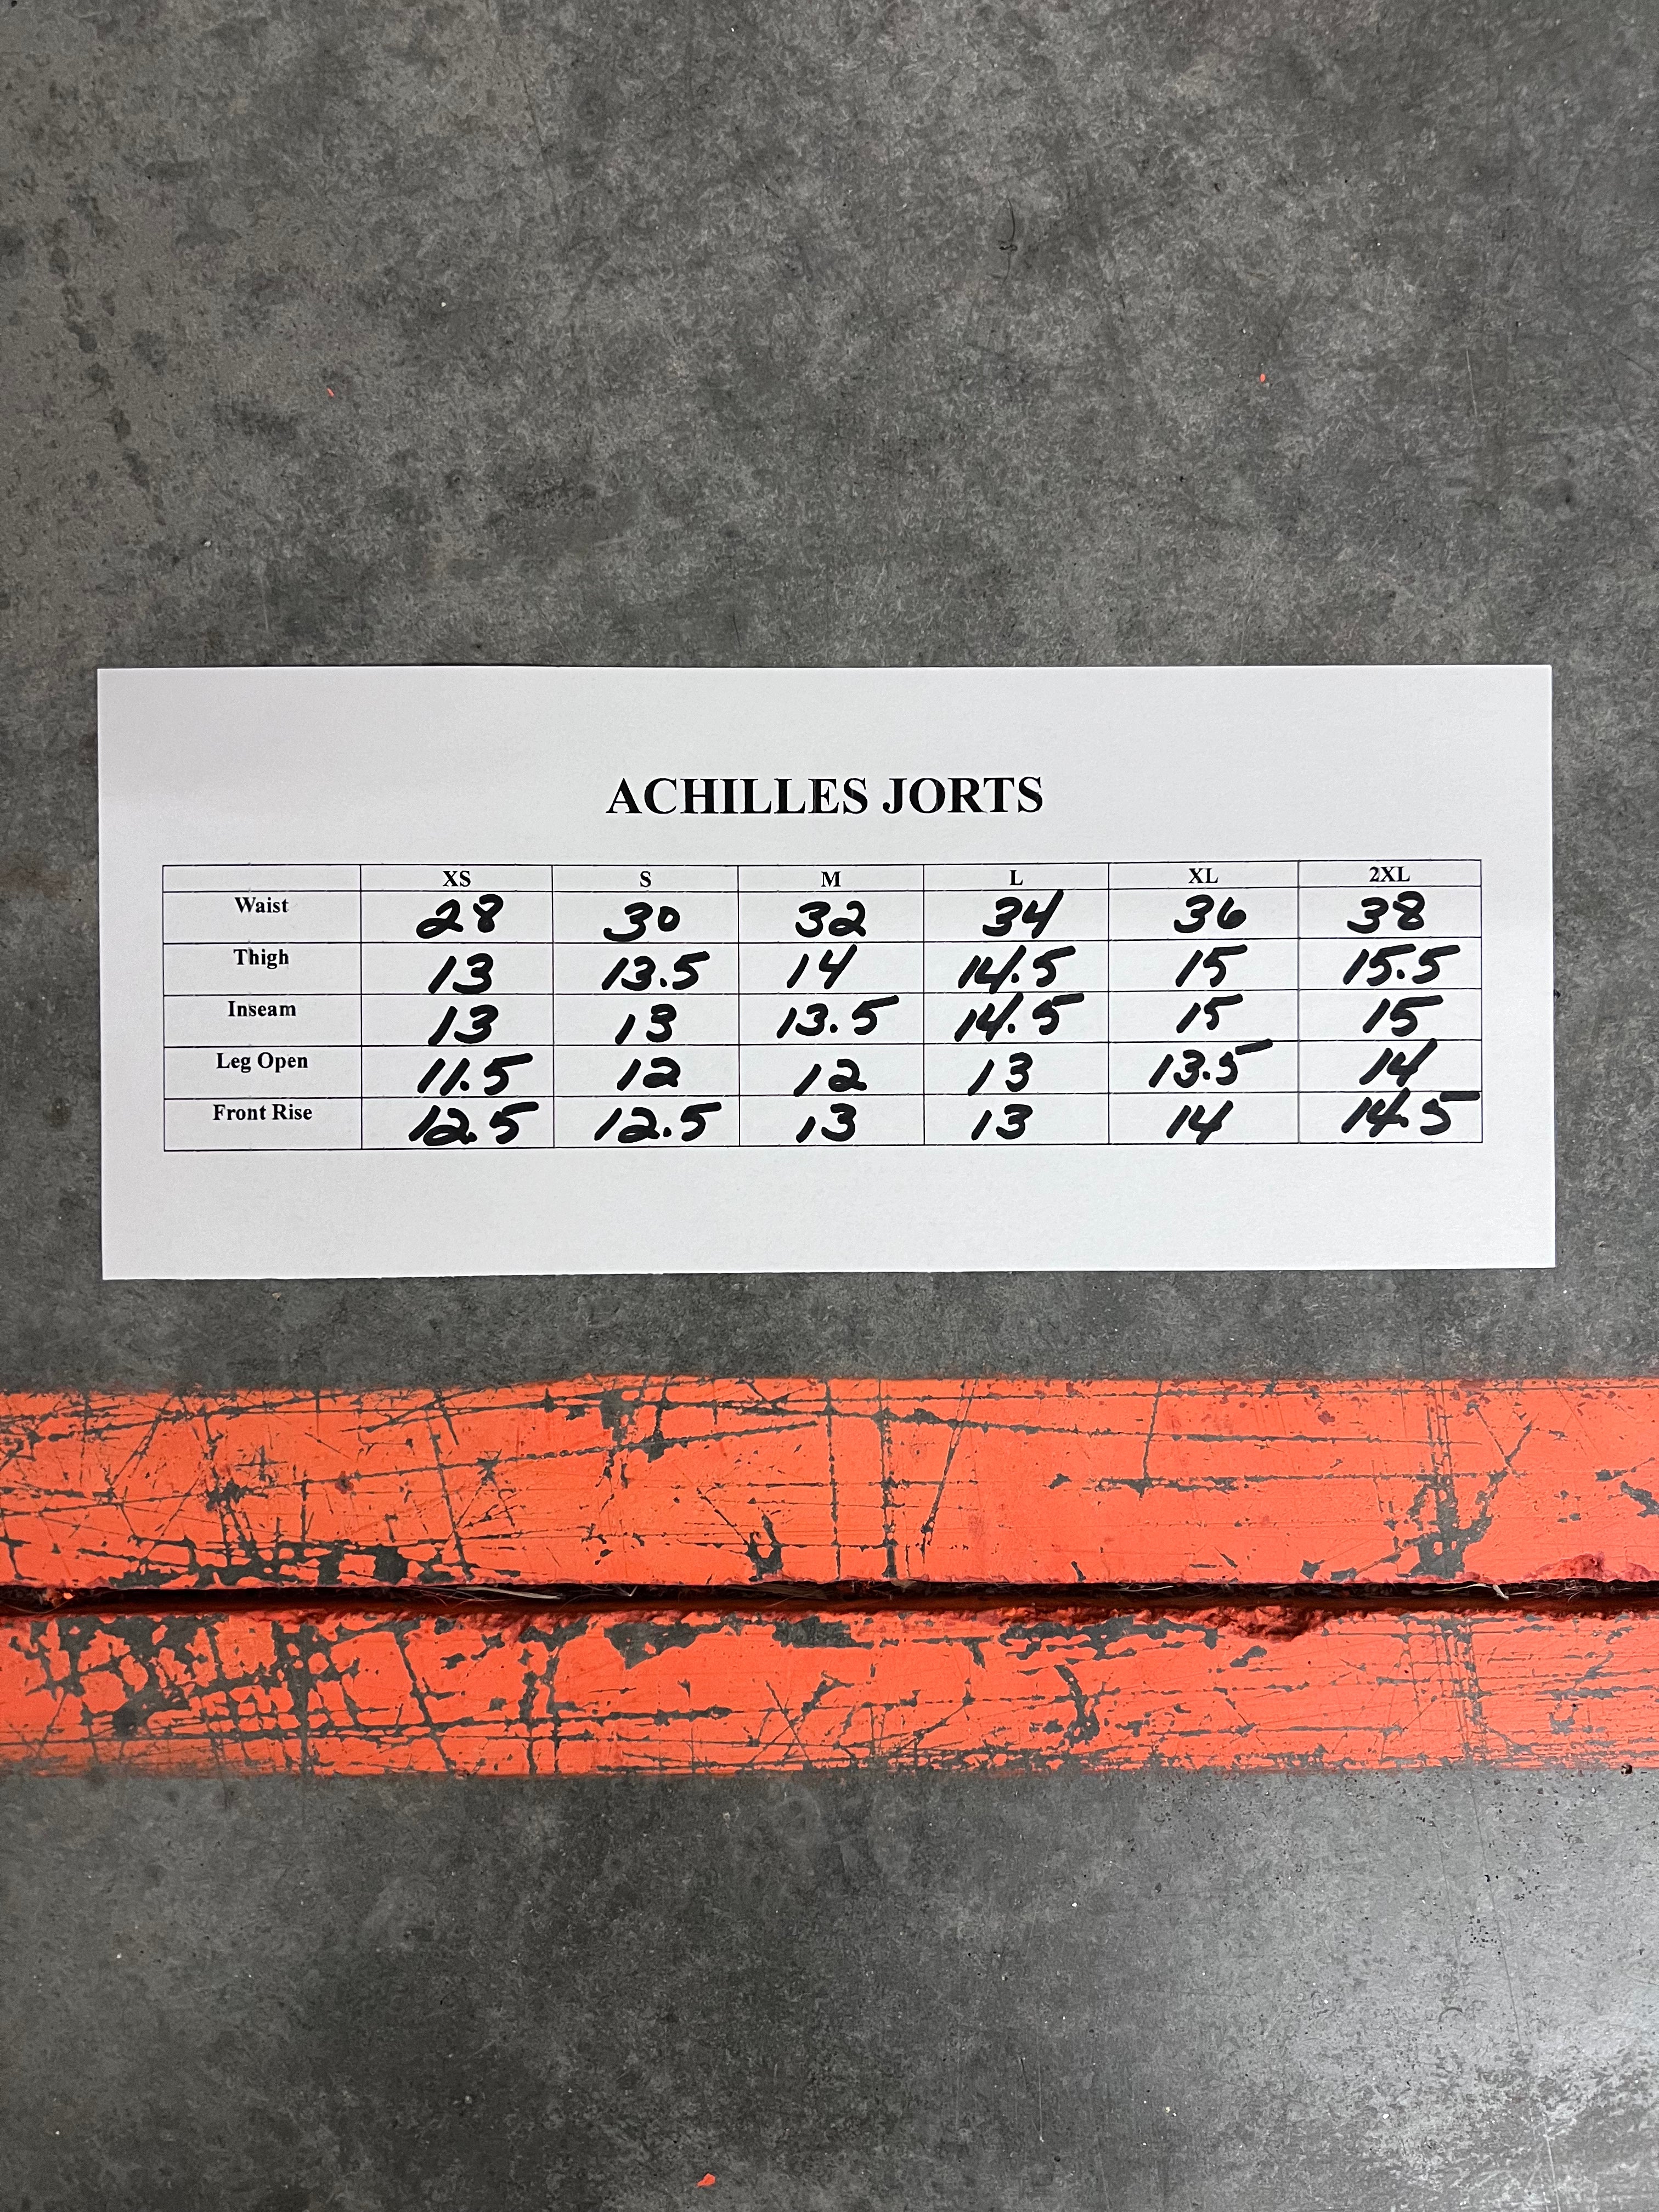 ACHILLES JORTS
XS S M L XL 2XL
Waist 28 30 32 34 36 38
Thigh 13 13.5 14 14.5 15 15.5
Inseam 13 13 13.5 14.5 15 15
Leg Open 11.5 12 12 13 13.5 14
Front Rise 12.5 12.5 13 13 14 14.5